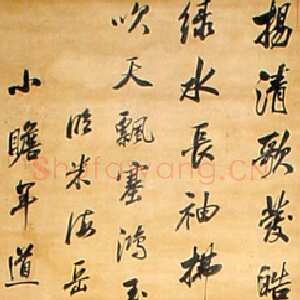 揚清歌發皓
緑水長袖拂
吹天飄塞鴻玉
臨米海岳
小瞻年道
Shufawang.CN